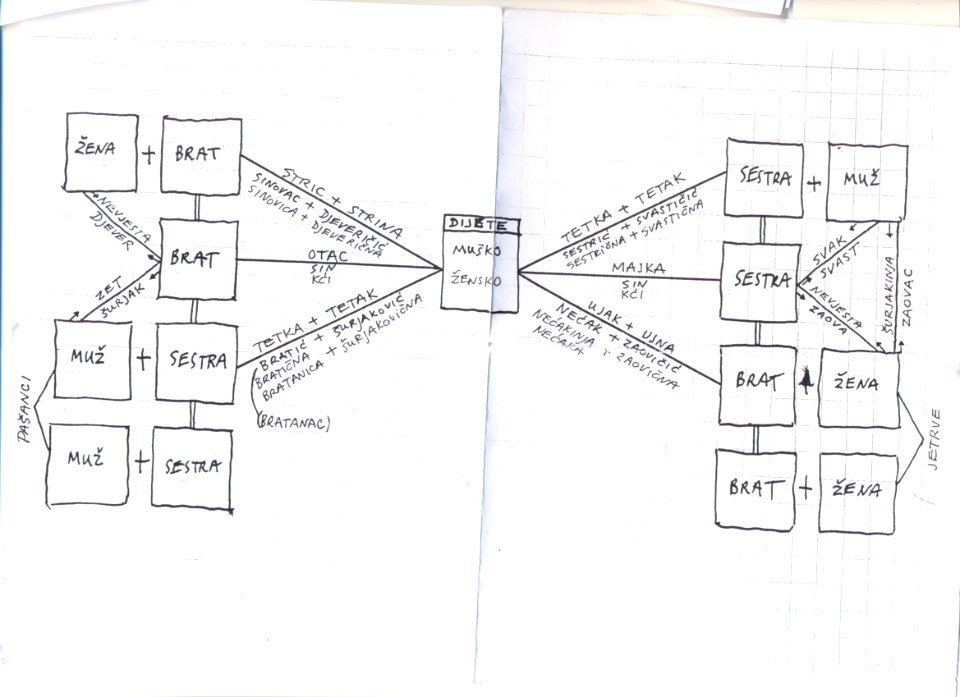 ŽENA + BRAT
NEVJESTA
DJEVER
BRAT
ZET
ŠURJAK
MUŽ + SESTRA
PAŠANCI
MUŽ + SESTRA
STRIC + STRINA
SINOVAC + DJEVERIČIĆ
SINOVICA + DJEVERIČNA
OTAC
SIN
KĆI
TETKA + TETAK
BRATIĆ + ŠURJAKOVIĆ
BRATIČNA + ŠURJAKOVIČNA
BRATANICA
(BRATANAC)
DIJETE
MUŠKO
ŽENSKO
TETKA + TETAK
SESTRIĆ + SVASTIČIĆ
SESTRIČNA + SVASTIČNA
MAJKA
SIN
KĆI
UJAK + UJNA
NEĆAK + ZAOVIČIĆ
NEĆAKINJA + ZAOVIČNA
NEĆAKA
SESTRA + MUŽ
SVAK
SVAST
SESTRA
NEVJESTA
ZAOVA
ŠURJAKINJA
ZAOVAC
BRAT + ŽENA
JETRVE
BRAT + ŽENA